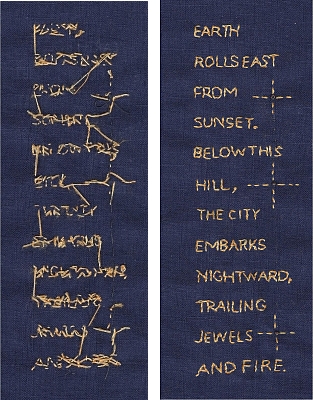 EARTH
ROLLS EAST
FROM
SUNSET.
BELOW THIS
HILL,
THE CITY
EMBARKS
NIGHTWARD,
TRAILING
JEWELS
AND FIRE.